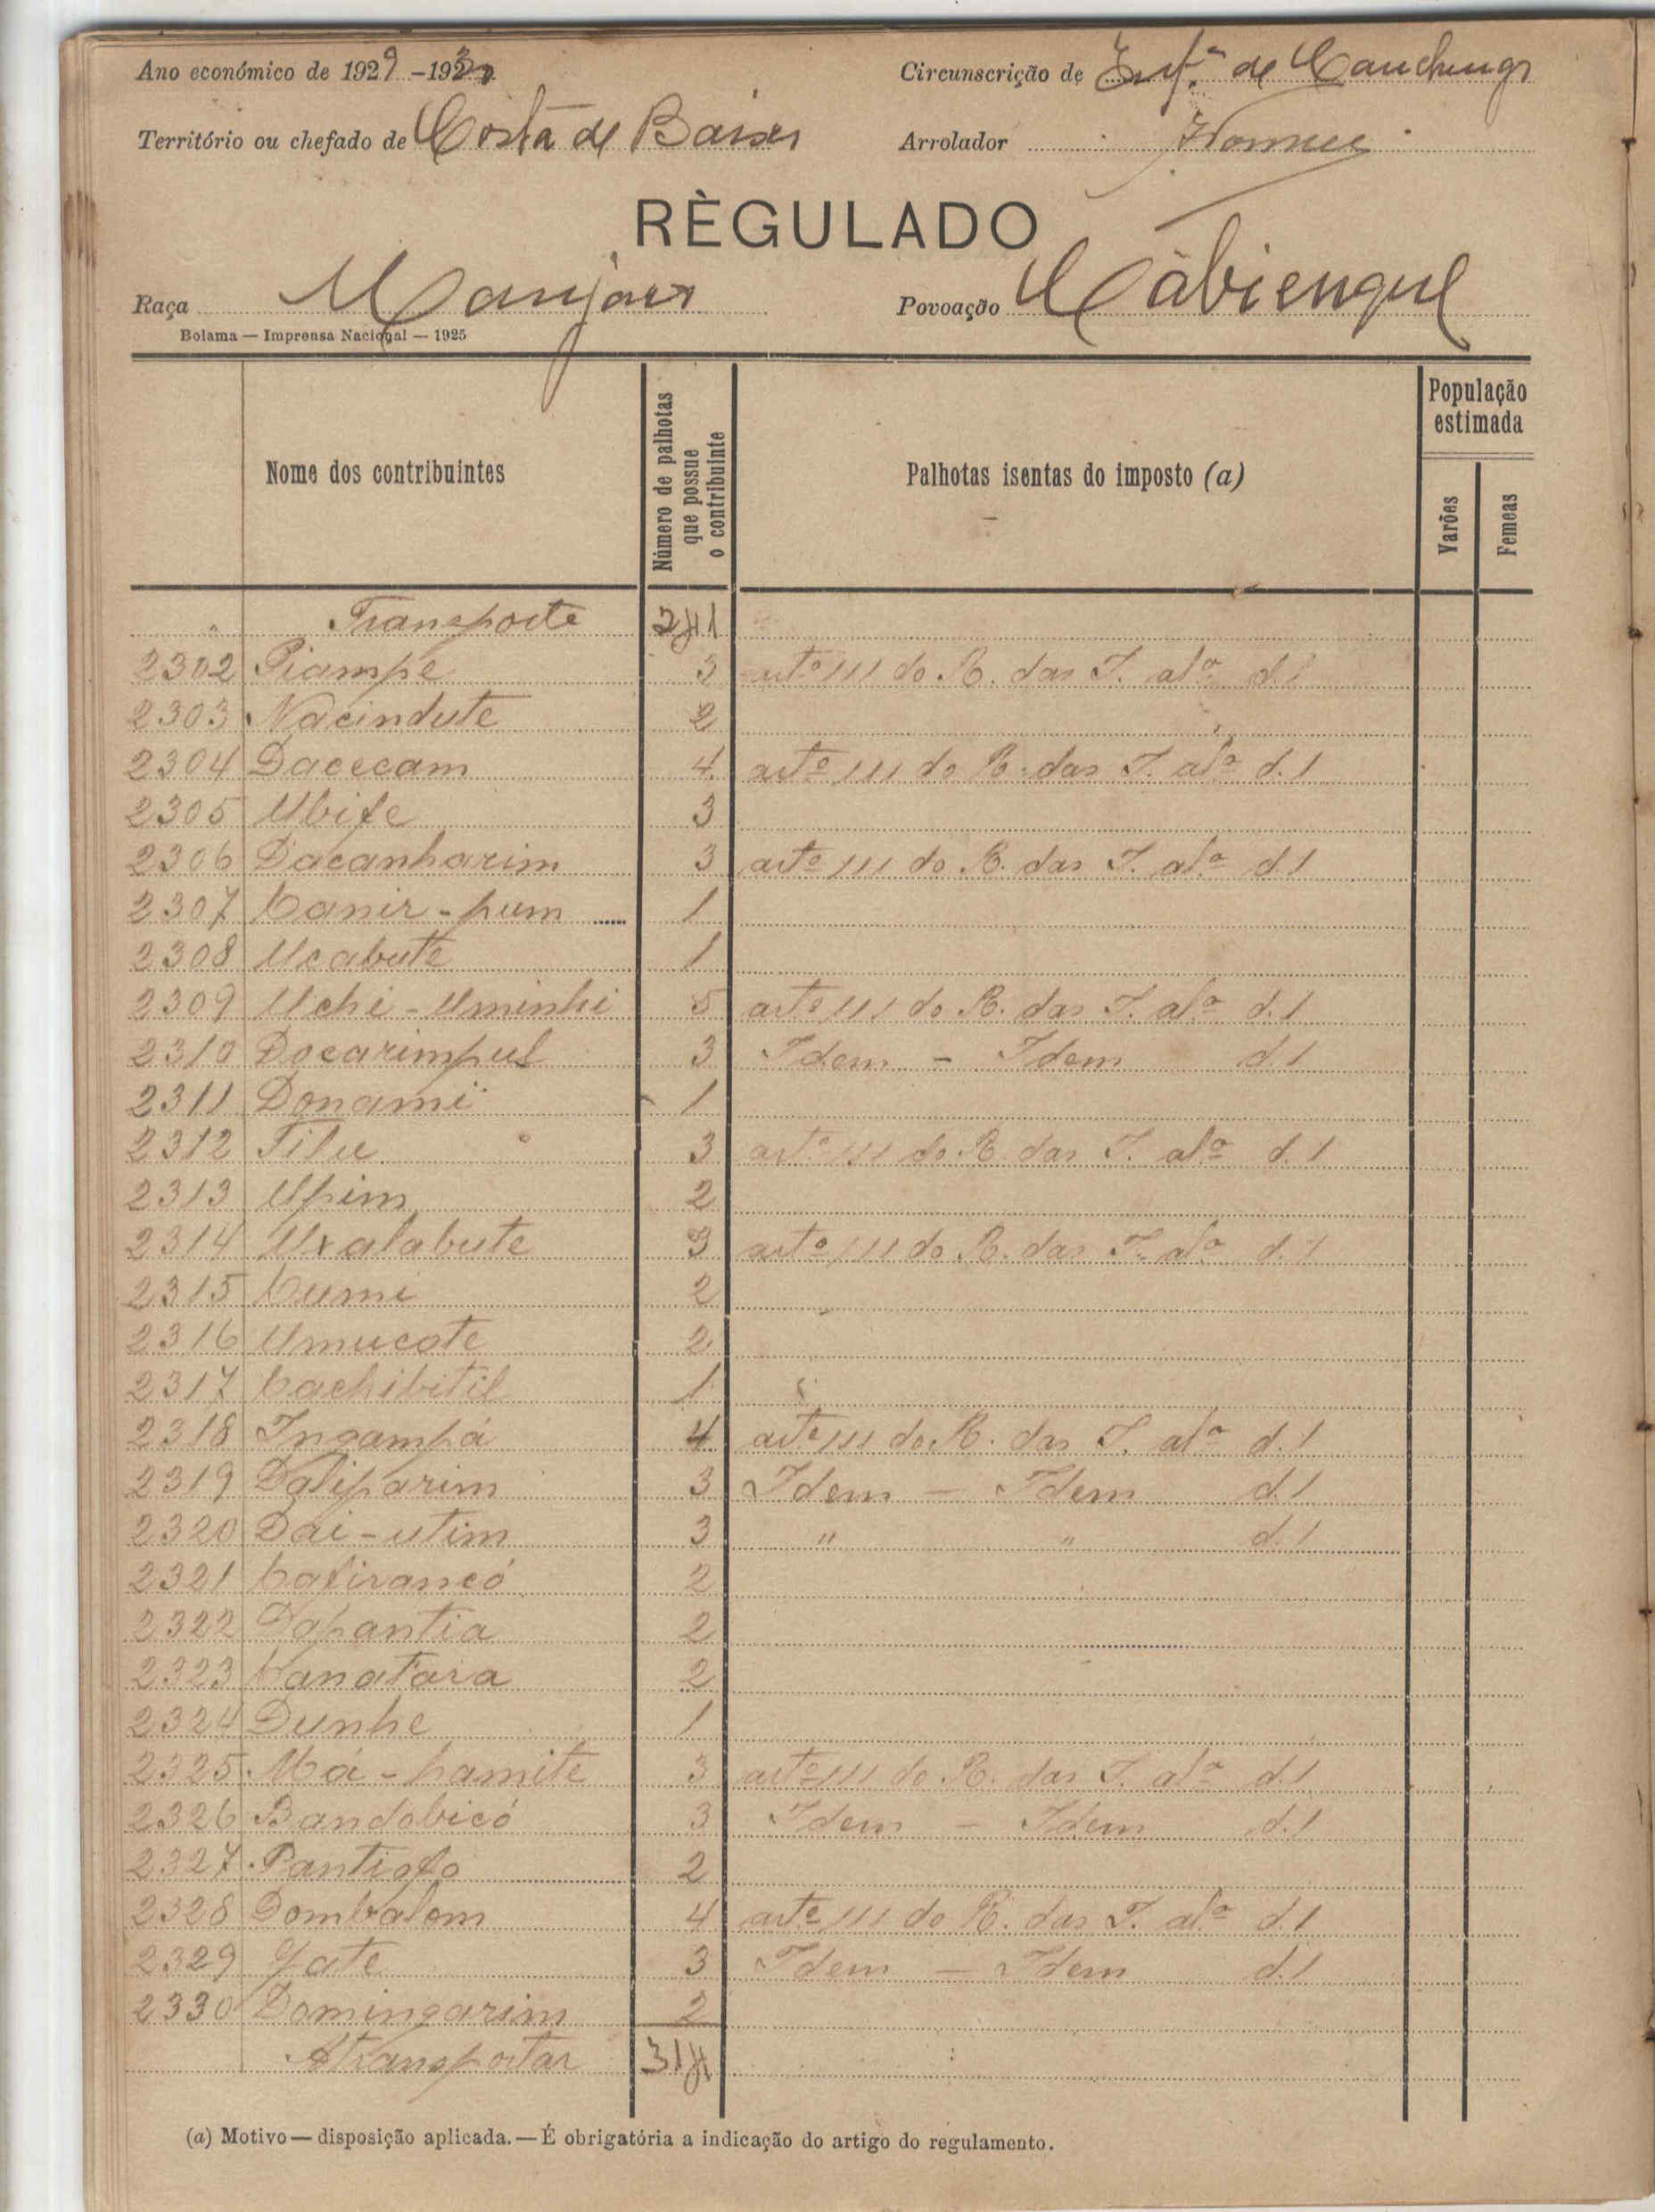 Ano económico de 1929-1930 Circunscrição de de Canchungo
Território ou chefado de Costa de Baixo Arrolador
RÈGULADO
Raça Manjaco Povoação Cabienque
Bolama — Imprensa Nacional — 1925
Nome dos contribuintes Número de palhotas que possue o contribuinte Palhotas isentas do imposto (a) População estimada Varões Femeas
" Transporte 241
2302 Piampe 3 artº 111 do R. das I. alª d.1
2303 Nacindute 2
2304 Dacecam 4 artº 111 do R. das I. alª d.1
2305 Ubife 3
2306 Dacanharim 3 artº 111 do R. das I. alª d.1
2307 Canir-pum 1
2308 Ucabute 1
2309 Uchi-Uminhi 5 artº 111 do R. das I. alª d.1
2310 Docarimpul 3 Idem - Idem d.1
2311 Donami 1
2312 Filu 3 artº 111 do R. das I. alª d.1
2313 Upim 2
2314 Uxalabute 3 artº 111 do R. das I. alª d.1
2315 Cumi 2
2316 Umucate 2
2317 Cachibitil 1
2318 Ingampá 4 artº 111 do R. das I. alª d.1
2319 Daliparim 3 Idem - Idem d.1
2320 Dai-utim 3 " " d.1
2321 Cafirancó 2
2322 Dapantia 2
2323 Canatara 2
2324 Dunhe 1
2325 Má-hamite 3 artº 111 do R. das I. alª d.1
2326 Bandobicó 3 Idem - Idem d.1
2327 Pantiafo 2
2328 Dombalom 4 artº 111 do R. das I. alª d.1
2329 Jate 3 Idem - Idem d.1
2330 Domingarim 2
A transportar 314
(a) Motivo — disposição aplicada. — É obrigatória a indicação do artigo do regulamento.